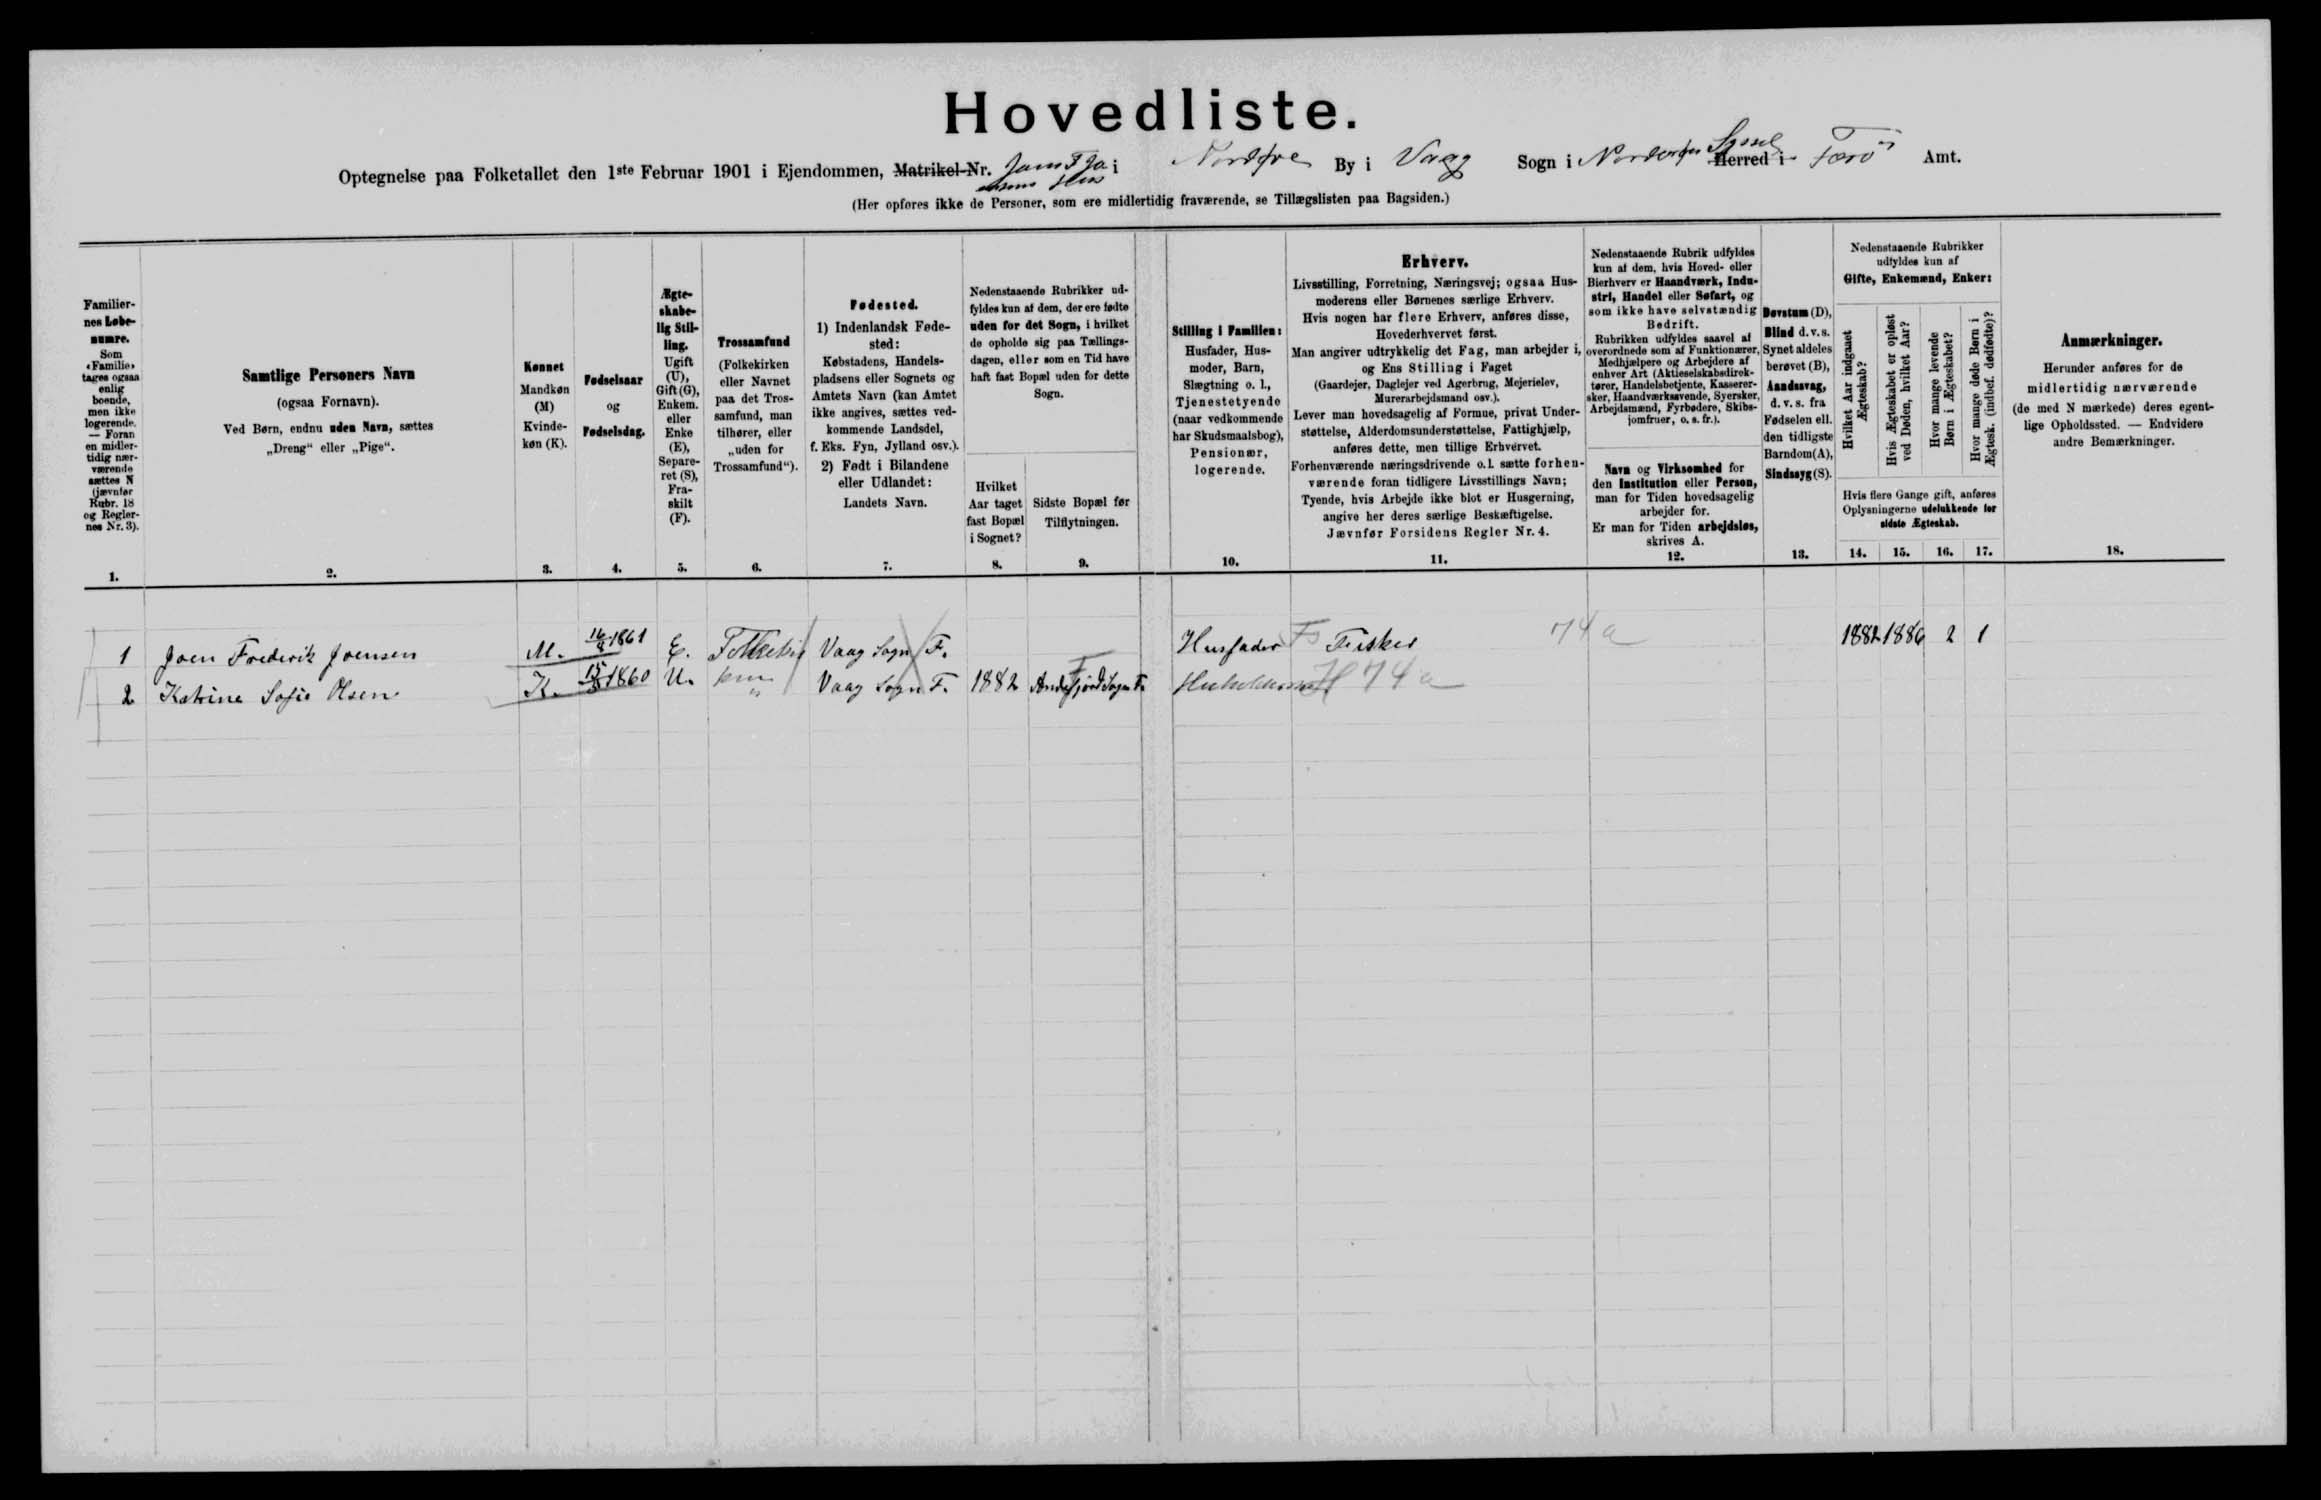 Hovedliste.
Optegnelse paa Folketallet den 1ste Februar 1901 i Ejendommen, Matrikel-Nr. i By i Vaag Sogn i Syssel Herred i Færø Amt.
Hus
(Her opføres ikke de Personer, som ere midlertidig fraværende, se Tillægslisten paa Bagsiden.)
Familier-
nes Løbe-
numre.
Som
«Familie»
tages ogsaa
enlig
boende,
men ikke
logerende.
— Foran
en midler-
tidig nær-
værende
sættes N
(jævnfør
Rubr. 18
og Regler-
nes Nr. 3).
1.
Samtlige Personers Navn
(ogsaa Fornavn).
Ved Børn, endnu uden Navn, sættes
„Dreng“ eller „Pige“.
2.
Kønnet
Mandkøn
(M)
Kvinde-
køn (K).
3.
Fødselsaar
og
Fødselsdag.
4.
Ægte-
skabe-
lig Stil-
ling.
Ugift
(U),
Gift (G),
Enkem.
eller
Enke
(E),
Separe-
ret (S),
Fra-
skilt
(F).
5.
Trossamfund
(Folkekirken
eller Navnet
paa det Tros-
samfund, man
tilhører, eller
„uden for
Trossamfund“).
6.
Fødested.
1) IndenlandskFøde-
sted:
Købstadens, Handels-
pladsens eller Sognets og
Amtets Navn (kan Amtet
ikke angives, sættes ved-
kommende Landsdel,
f. Eks. Fyn, Jylland osv.).
2) Født i Bilandene
eller Udlandet:
Landets Navn.
7.
Nedenstaaende Rubrikker ud-
fyldes kun af dem, der ere fødte
uden for det Sogn, i hvilket
de opholde sig paa Tællings-
dagen, eller som en Tid have
haft fast Bopæl uden for dette
Sogn.
Hvilket
Aar taget
fast Bopæl
i Sognet?
8.
Sidste Bopæl før
Tilflytningen.
9.
Stilling i Familien:
Husfader, Hus-
moder, Barn,
Slægtning o. l.,
Tjenestetyende
(naar vedkommende
har Skudsmaalsbog),
Pensionær,
logerende.
10.
Erhverv.
Livsstilling, Forretning, Næringsvej; ogsaa Hus-
moderens eller Børnenes særlige Erhverv.
Hvis nogen har flere Erhverv, anføres disse,
Hovederhvervet først.
Man angiver udtrykkelig det Fag, man arbejder i,
og Ens Stilling i Faget
(Gaardejer, Daglejer ved Agerbrug, Mejerielev,
Murerarbejdsmand osv.).
Lever man hovedsagelig af Formue, privat Under-
støttelse, Alderdomsunderstøttelse, Fattighjælp,
anføres dette, men tillige Erhvervet.
Forhenværende næringsdrivende o. l. sætte forhen-
værende foran tidligere Livsstillings Navn;
Tyende, hvis Arbejde ikke blot er Husgerning,
angive her deres særlige Beskæftigelse.
Jævnfør Forsidens Regler Nr. 4.
11.
Nedenstaaende Rubrik udfyldes
kun af dem, hvis Hoved- eller
Bierhverv er Haandværk, Indu-
stri, Handel eller Søfart, og
som ikke have selvstændig
Bedrift.
Rubrikken udfyldes saavel af
overordnede som af Funktionærer,
Medhjælpere og Arbejdere af
enhver Art (Aktieselskabsdirek-
tører, Handelsbetjente, Kasserer-
sker, Haandværkssvende, Syersker,
Arbejdsmænd, Fyrbødere, Skibs-
jomfruer, o. s. fr.).
Navn og Virksomhed for
den Institution eller Person,
man for Tiden hovedsagelig
arbejder for.
Er man for Tiden arbejdsløs,
skrives A.
12.
Døvstum (D),
Blind d. v. s.
Synet aldeles
berøvet (B),
Aandssvag,
d. v. s. fra
Fødselen ell.
den tidligste
Barndom (A),
Sindssyg (S).
13.
Nedenstaaende Rubrikker
udfyldes kun af
Gifte, Enkemænd, Enker:
Hvilket Aar indgaaet
Ægteskab?
Hvis Ægteskabet er opløst
ved Døden, hvilket Aar?
Hvor mange levende
Børn i Ægteskabet?
Hvor mange døde Børn i
Ægtesk. (indbef. dødfødte)?
Hvis flere Gange gift, anføres
Oplysningerne udelukkende for
sidste Ægteskab.
14. 15. 16. 17.
Anmærkninger.
Herunder anføres for de
midlertidig nærværende
(de med N mærkede) deres egent-
lige Opholdssted. — Endvidere
andre Bemærkninger.
18.
1 Joen Frederik Joensen M. 1861 E. Folkekir Vaag Sogn F. Husfader Fisker 74 a 1882 1886 2 1
2 Katrine Sofie Olsen K. 1860 U. ken " Vaag Sogn F. 1882 H 74 a